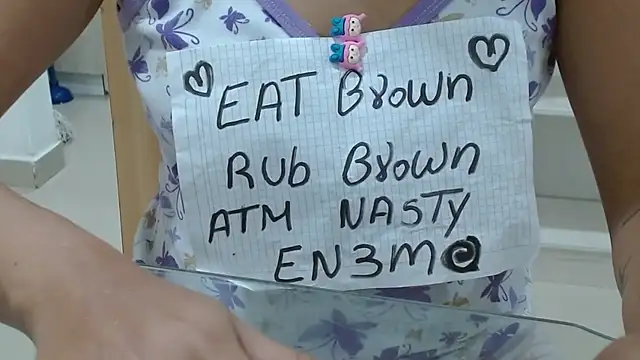 EAT Brown
RUb Brown
ATM NASTY
EN3M@